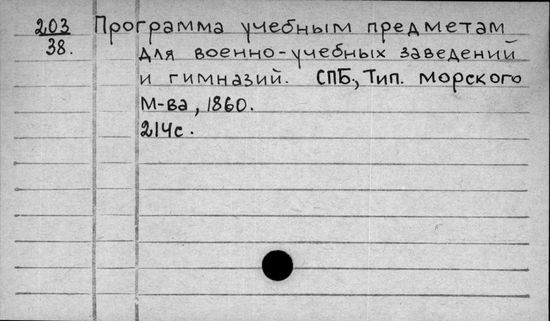 203 Программа учебным предметам
38. для военно-учебных заведений
и гимназий. СПБ., Тип. Морского
м-ва, 1860.
214с.